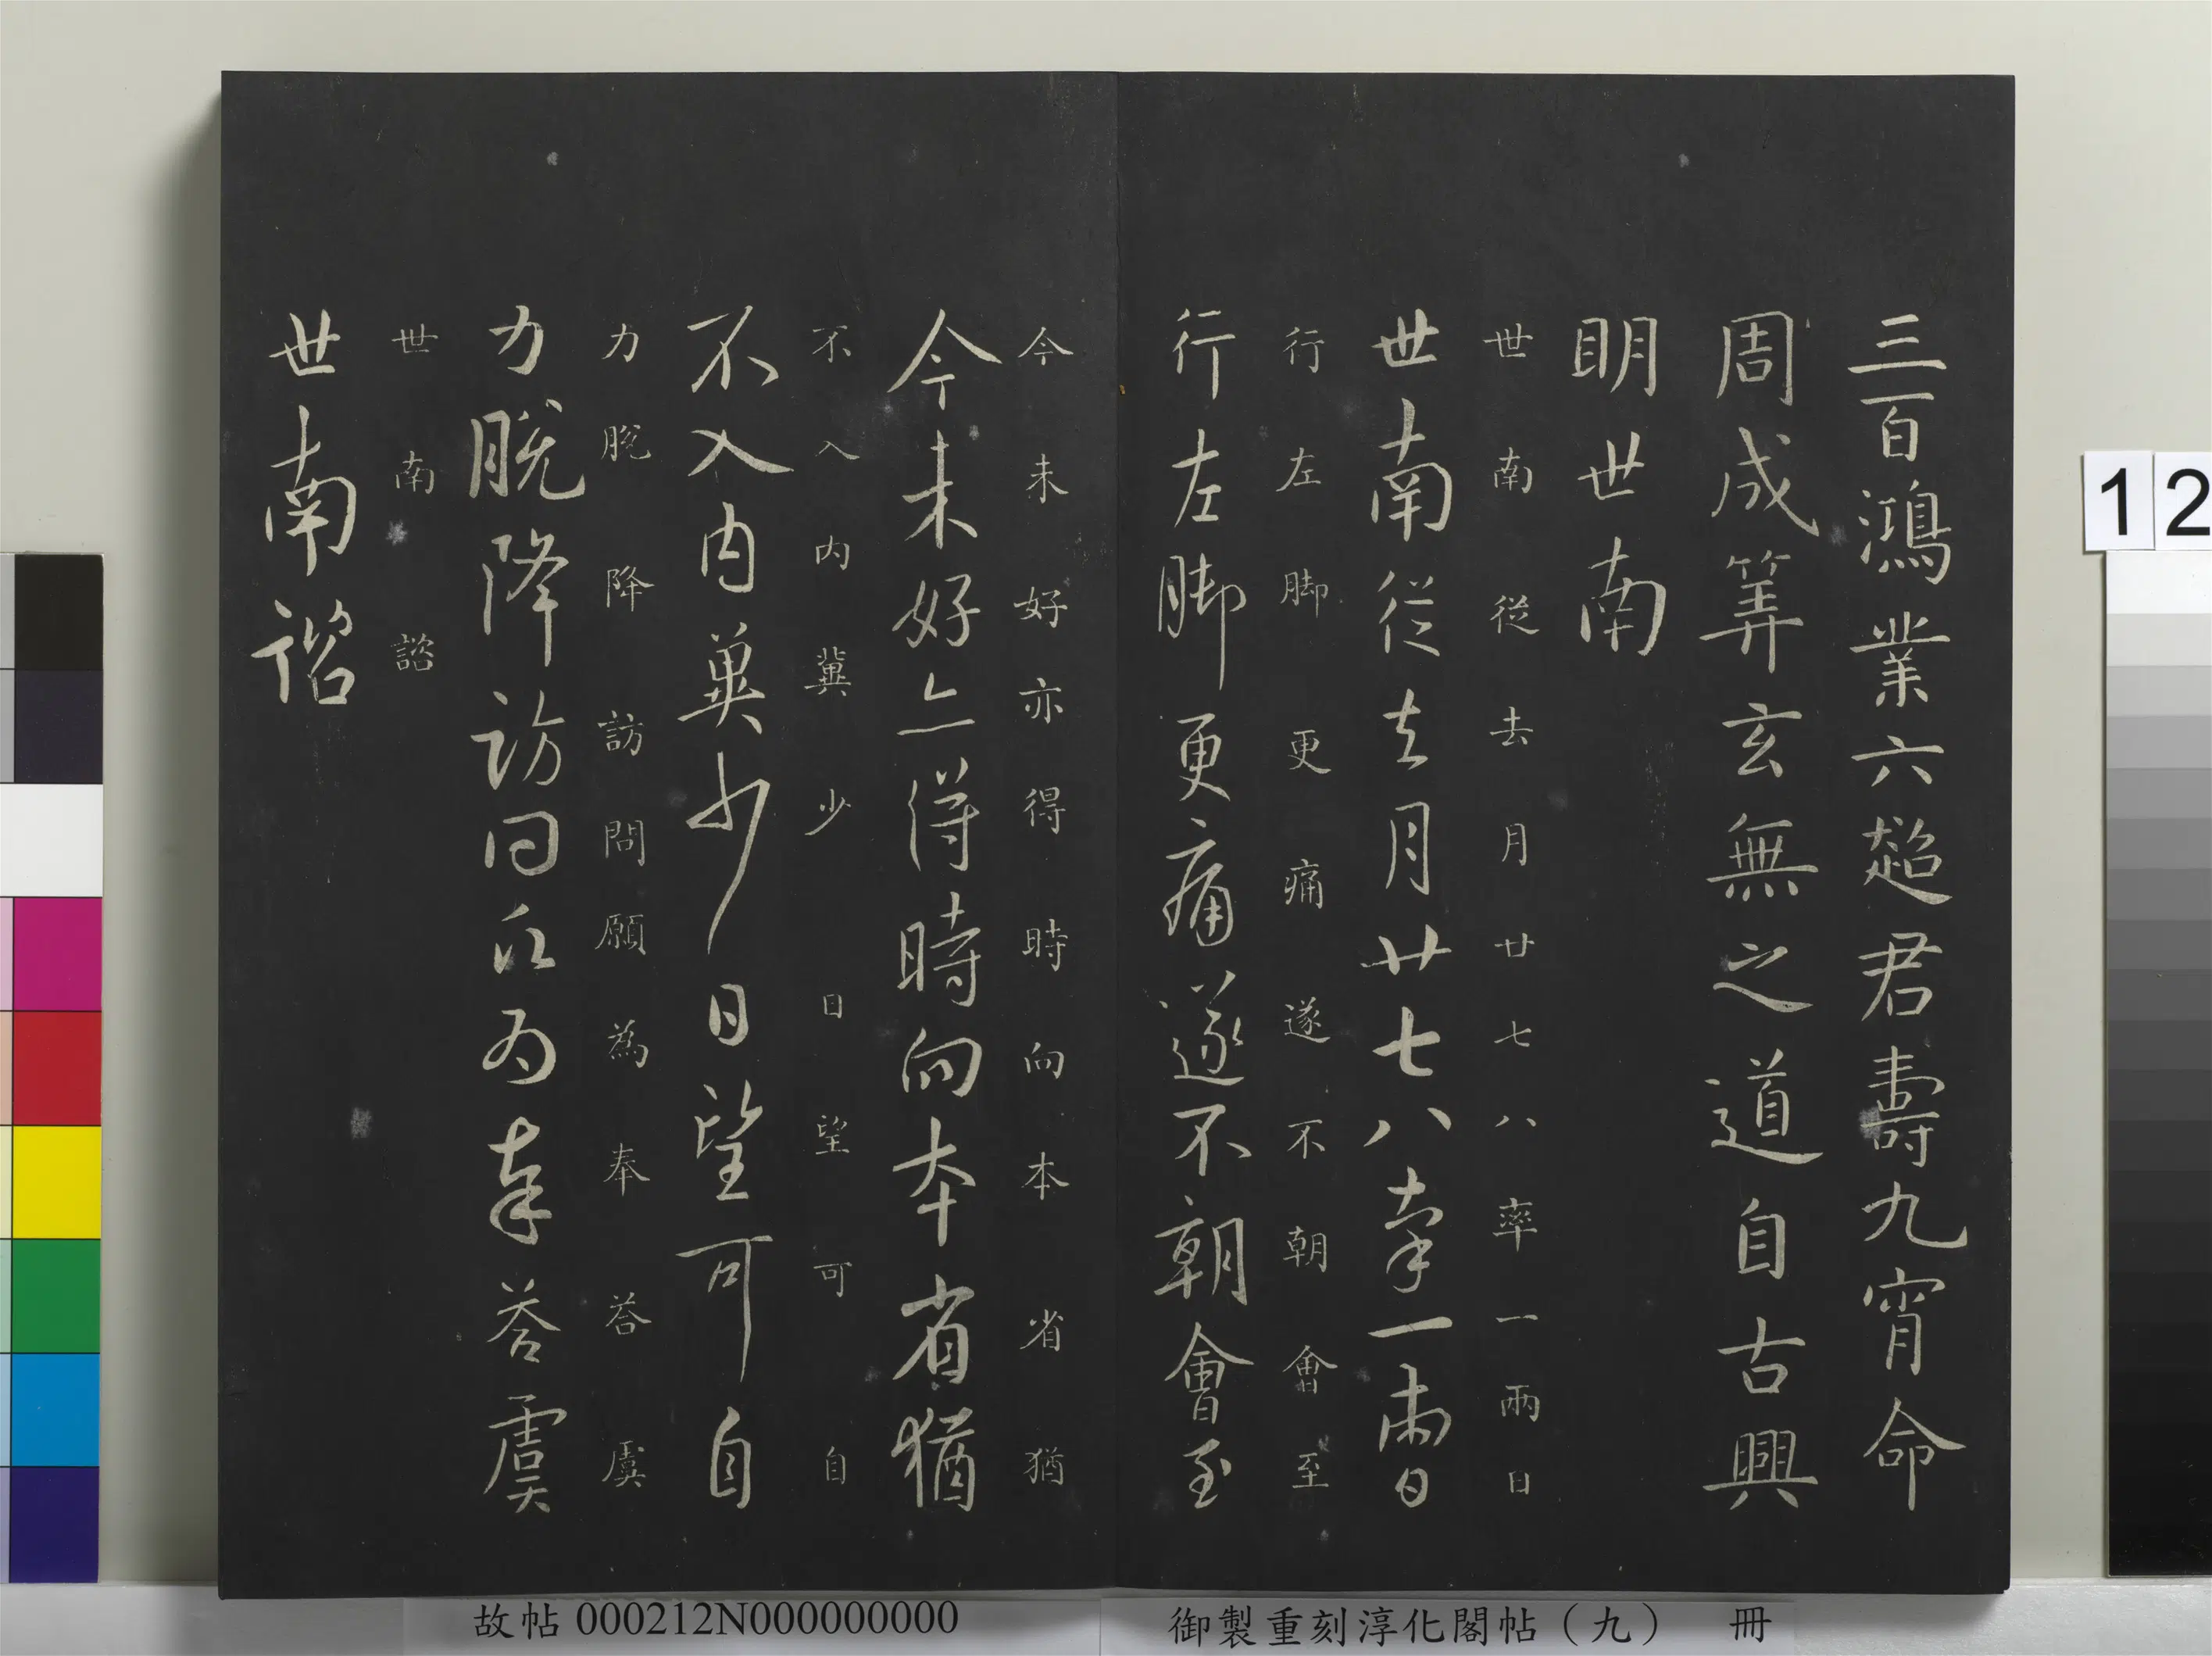 三百鴻業六超君壽九宵命
周成筭玄無之道自古興
明世南
世南從去月廿七八率一兩日
世南從去月廿七八率一兩日
行左脚更痛遂不朝會至
行左脚更痛遂不朝會至
今未好亦得時時向本省猶
今未好亦得時向本省猶
不入內冀少日望可自
不入內冀少日望可自
力脫降訪問願為奉荅虞
力脫降訪問願為奉荅虞
世南諮
世南諮
12
故帖 000212N000000000
御製重刻淳化閣帖（九） 冊